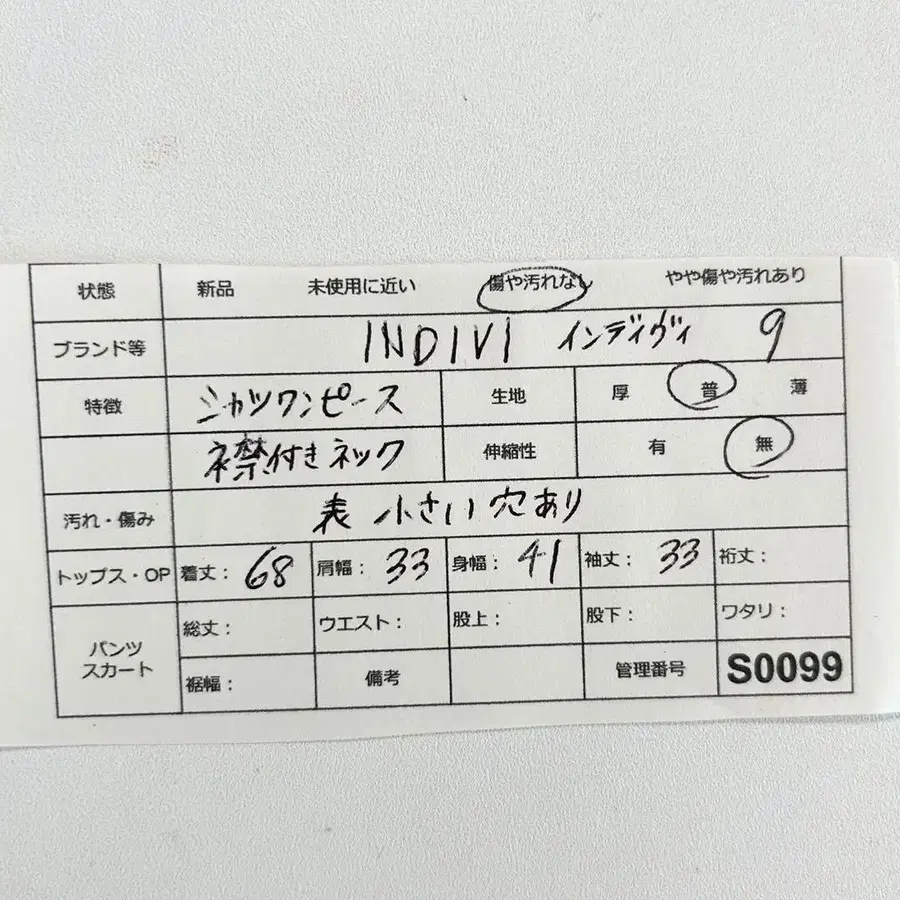 状態 新品 未使用に近い 傷や汚れなし やや傷や汚れあり
ブランド等 INDIVI インディヴィ 9
特徴 シャツワンピース 生地 厚 普 薄
襟付きネック 伸縮性 有 無
汚れ・傷み 表 小さい穴あり
トップス・OP 着丈: 68 肩幅: 33 身幅: 41 袖丈: 33 裄丈:
パンツ
スカート
総丈: ウエスト: 股上: 股下: ワタリ:
裾幅: 備考 管理番号 S0099